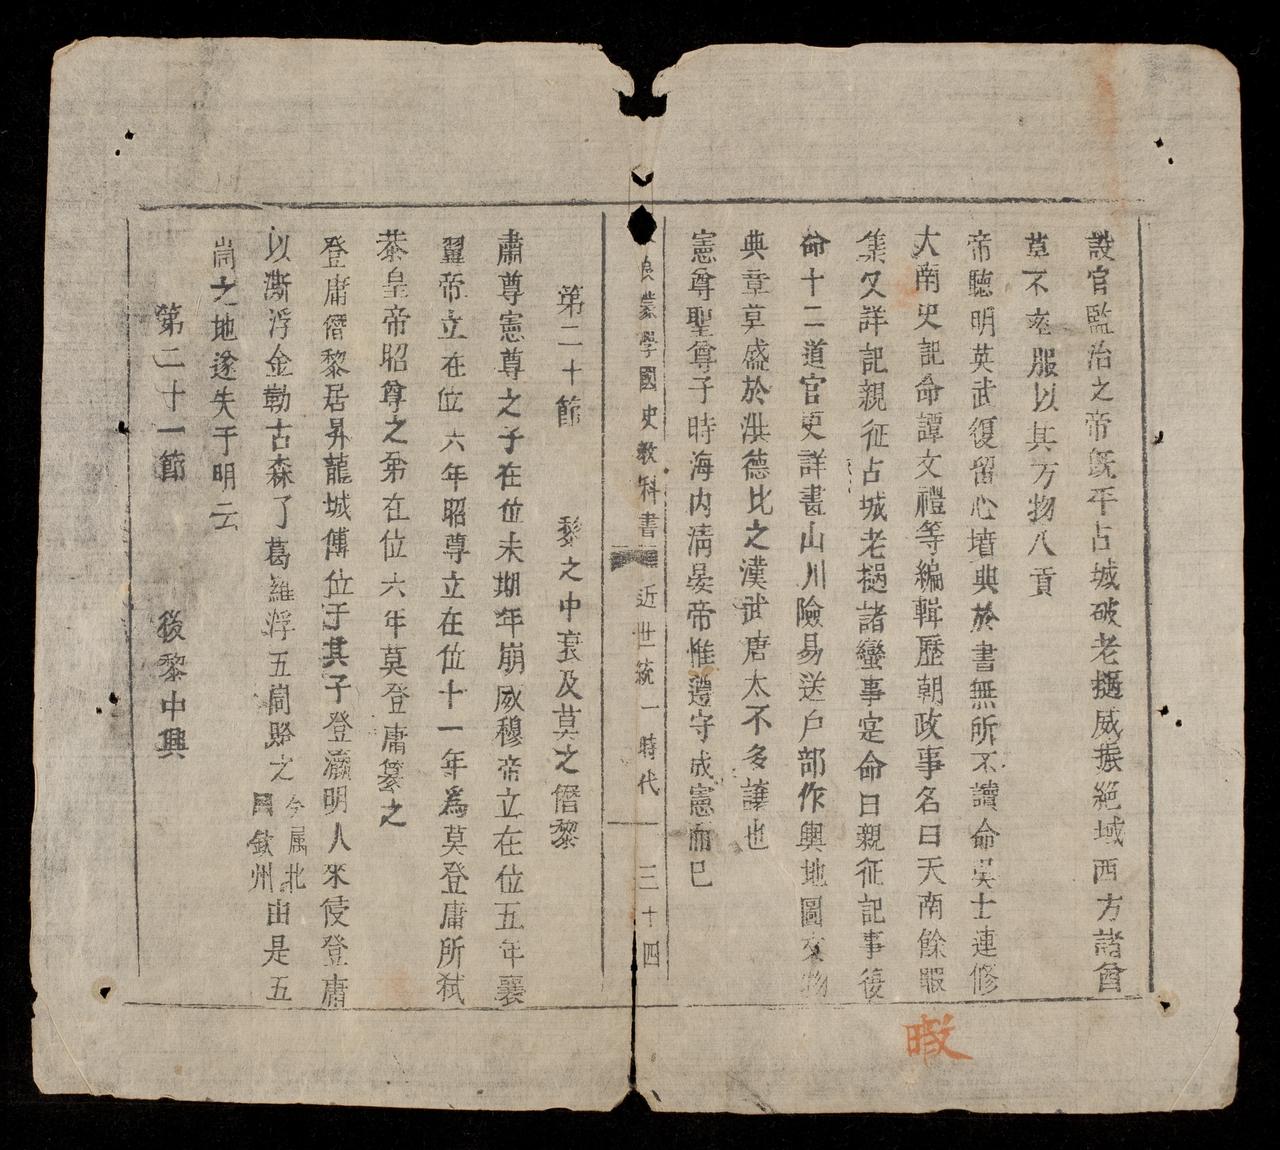 設官監治之帝旣平占城破老撾威振絕域西方諸酋
莫不率服以其方物入貢
帝聰明英武復留心墳典於書無所不讀命吳士連修
大南史記命譚文禮等編輯歷朝政事名曰天南餘暇
集又詳記親征占城老撾諸蠻事寔命曰親征記事復
命十二道官吏詳畫山川險易送户部作輿地圖文物
典章莫盛於洪德比之漢武唐太不多讓也
憲尊聖尊子時海内清晏帝惟遵守成憲而已
良蒙學國史教科書 近世統一時代 三十四
第二十節 黎之中衰及莫之僭黎
肅尊憲尊之子在位未期年崩威穆帝立在位五年襄
翼帝立在位六年昭尊立在位十一年為莫登庸所弑
恭皇帝昭尊之弟在位六年莫登庸篡之
登庸僭黎居昇龍城傳位于其子登瀛明人來侵登庸
以澌浮金勒古森了葛羅浮五峝賂之今属北圻欽州由是五
峝之地遂失于明云
第二十一節 後黎中興
暇